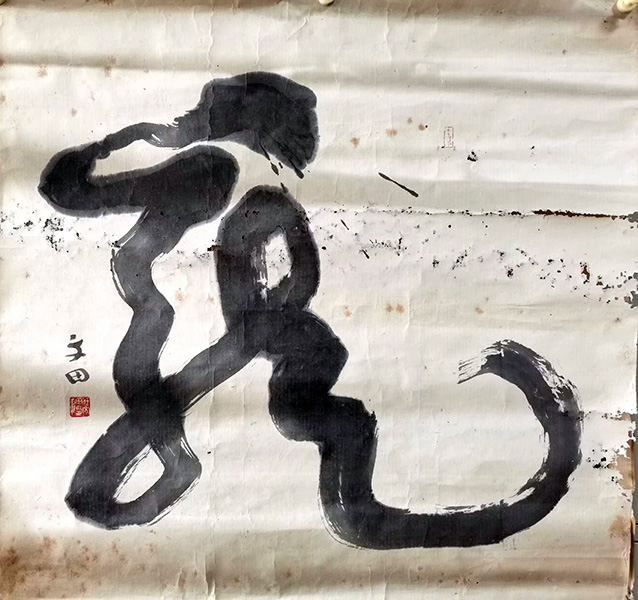 龍
文田